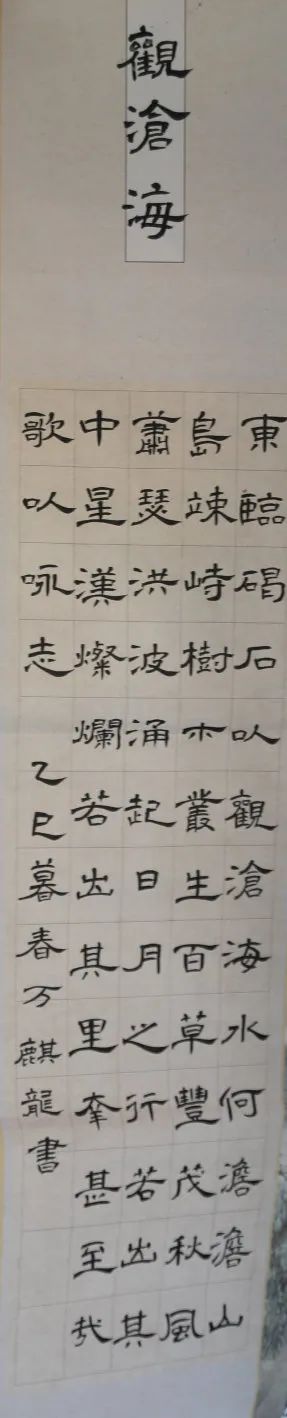 觀滄海
東臨碣石以觀滄海水何澹澹山
島竦峙樹木叢生百草豐茂秋風
蕭瑟洪波涌起日月之行若出其
中星漢燦爛若出其里幸甚至哉
歌以咏志
乙巳暮春万麒龍書